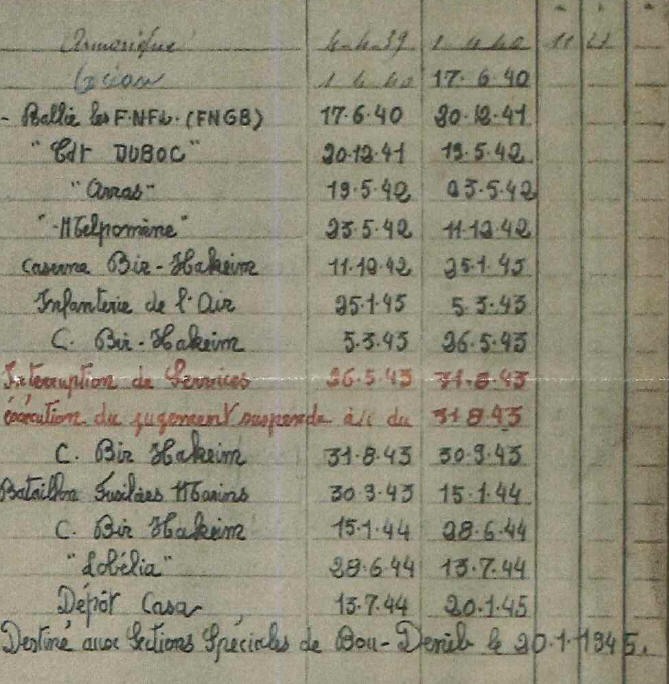 Armorique 4-4-39 1 4 40 11 27
Océan 1 4 40 17.6.40
- Rallié les F.N.F.L. (FNGB) 17.6.40 20.12.41
"Cdt DUBOC" 20.12.41 19.5.42
"Arras" 19.5.42 23.5.42
"Melpomène" 23.5.42 11.12.42
Caserne Bir-Hakeim 11.12.42 25.1.43
Infanterie de l'Air 25.1.43 5.3.43
C. Bir-Hakeim 5.3.43 26.5.43
Interruption de Services 26.5.43 31.8.43
éxécution du jugement suspendu à/c du 31 8.43
C. Bir Hakeim 31.8.43 30.9.43
Bataillon Fusiliers Marins 30 9.43 15.1.44
C. Bir Hakeim 15.1.44 28.6.44
"Lobélia" 28.6.44 13.7.44
Dépôt Casa 13.7.44 20.1.45
Destiné aux Sections Spéciales de Bou-Denib le 20.1.1945.